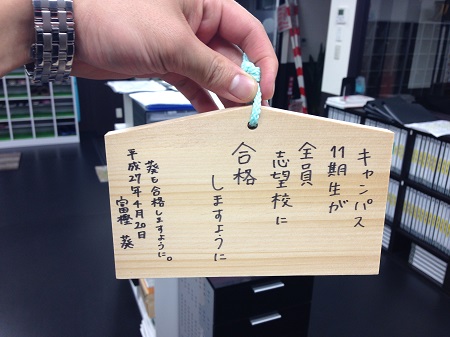 キャンパス
11期生が
全員
志望校に
合格
しますように
葵も合格しますように。
平成27年4月20日
富樫 葵